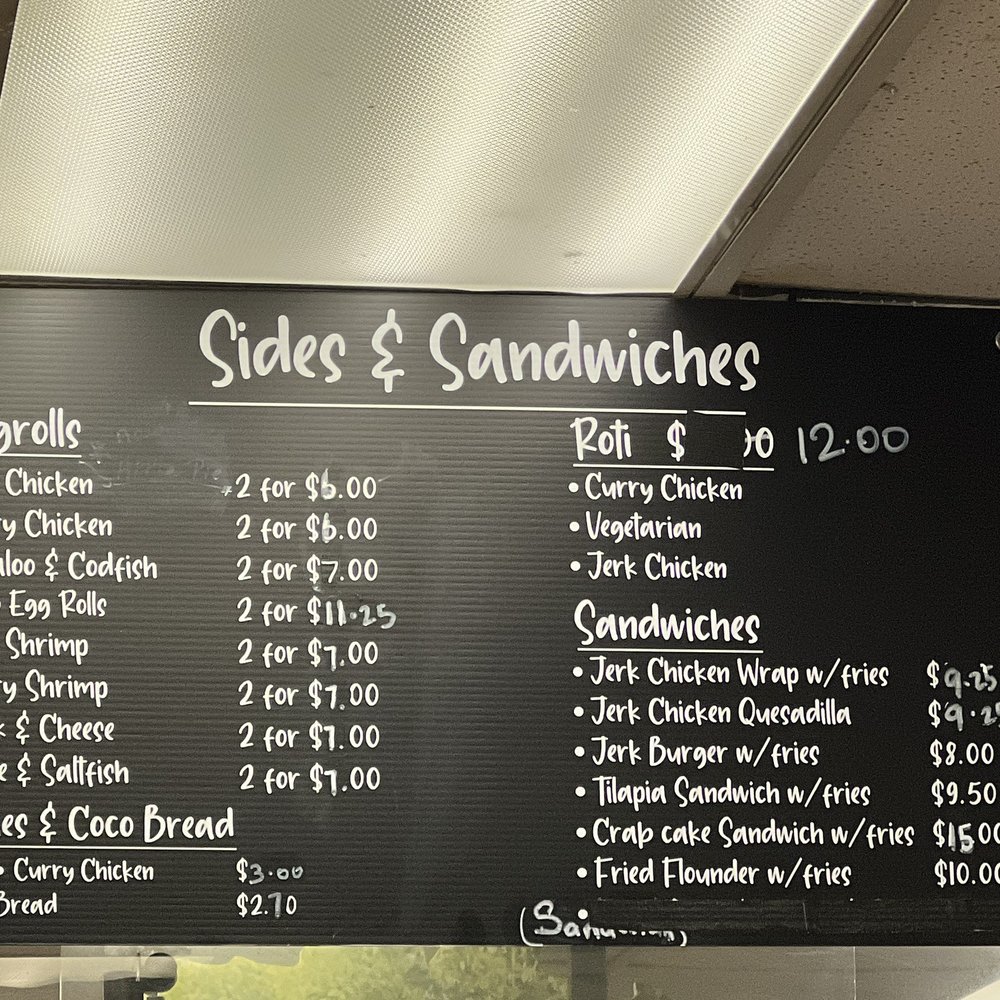 Sides & Sandwiches
Chicken 2 for $6.00
Chicken 2 for $6.00
& Codfish 2 for $7.00
Egg Rolls 2 for $11.25
Shrimp 2 for $7.00
Shrimp 2 for $7.00
& Cheese 2 for $7.00
& Saltfish 2 for $7.00
& Coco Bread
• Curry Chicken $3.00
Bread $2.70
Roti $ 12.00
• Curry Chicken
• Vegetarian
• Jerk Chicken
Sandwiches
• Jerk Chicken Wrap w/fries $9.25
• Jerk Chicken Quesadilla
• Jerk Burger w/fries $8.00
• Tilapia Sandwich w/fries $9.50
• Crap cake Sandwich w/fries $15.00
• Fried Flounder w/fries $10.00